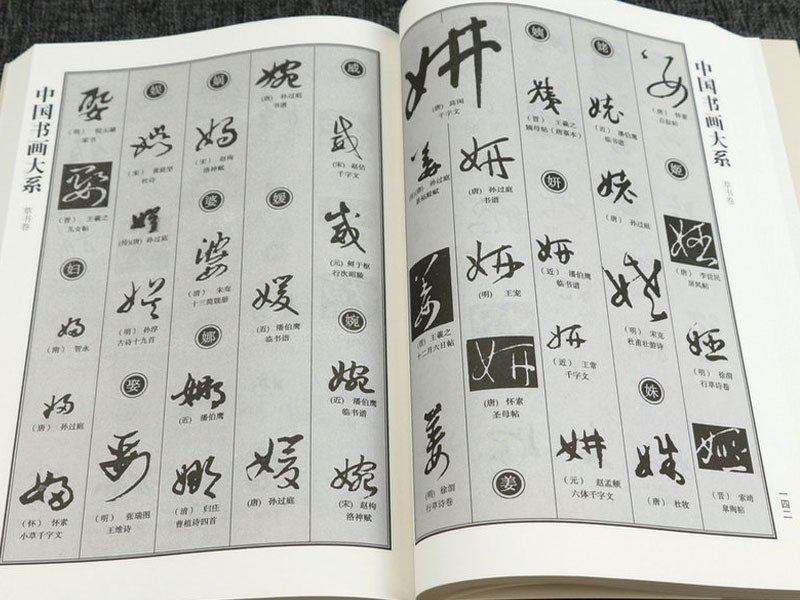 中国书画大系
草书卷
(唐) 怀素
姬
(唐) 李世民
屏风帖
(明) 徐渭
行草诗卷
(晋) 索靖
一四二
姥
(近) 潘伯鹰
临书谱
(唐) 孙过庭
(明) 宋克
杜甫壮游诗
姝
(唐) 杜牧
姨
(晋) 王羲之
姨母帖(唐摹本)
妍
(近) 潘伯鹰
临书谱
(近) 王常
千字文
(元) 赵孟頫
六体千字文
(唐) 高闲
千字文
(唐) 孙过庭
书谱
(明) 王宠
(唐) 怀素
圣母帖
姜
(唐) 孙过庭
景福殿赋
(晋) 王羲之
十二月六日帖
(明) 徐渭
行草诗卷
威
(宋) 赵佶
千字文
(元) 鲜于枢
行次昭陵
婉
(近) 潘伯鹰
临书谱
(宋) 赵构
洛神赋
(唐) 孙过庭
书谱
媛
(近) 潘伯鹰
临书谱
(唐) 孙过庭
娲
(宋) 赵构
洛神赋
婆
(清) 朱耷
娜
(近) 潘伯鹰
(清) 归庄
曹植诗四首
娱
(宋) 黄庭坚
杜诗
(传)(唐) 孙过庭
(明)
古诗十九首
娶
(明) 张瑞图
王维诗
(明) 倪元璐
家书
(晋) 王羲之
儿女帖
妇
(隋) 智永
(唐) 孙过庭
(怀) 怀素
小草千字文
中国书画大系
草书卷